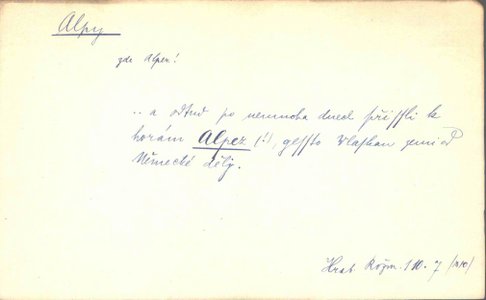 Alpy
zde Alpez!
.. a odtud po nemnoha dnech přissli k
horám Alpez (!), gessto Wlaskau zemi od
Německé dělj.
Hrab. Rožm. 110. 7